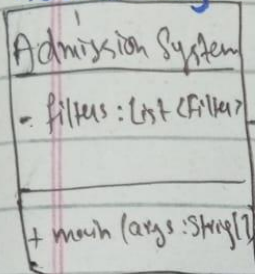 Admission System
- filters : List <Filter>
+ main (args : String[]